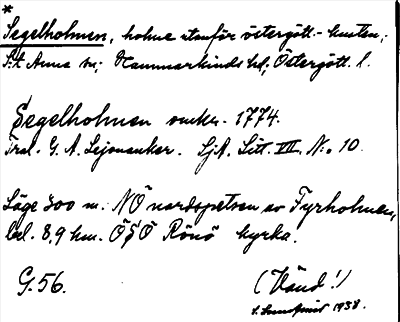 *
Segelholmen, holme utanför östergött.-kusten;
S:t Anna sn; Hammarkinds hd, Östergötl. l.
Segelholmen omkr. 1774.
Tral. G. A. Lejonanker. Lj A. Litt. VII. No 10.
Läge 300 m. NÖ nordspetsen av Fyrholmen,
bel. 8,9 km. ÖSÖ Rönö kyrka.
G. 56.
(Vänd!)
1938.